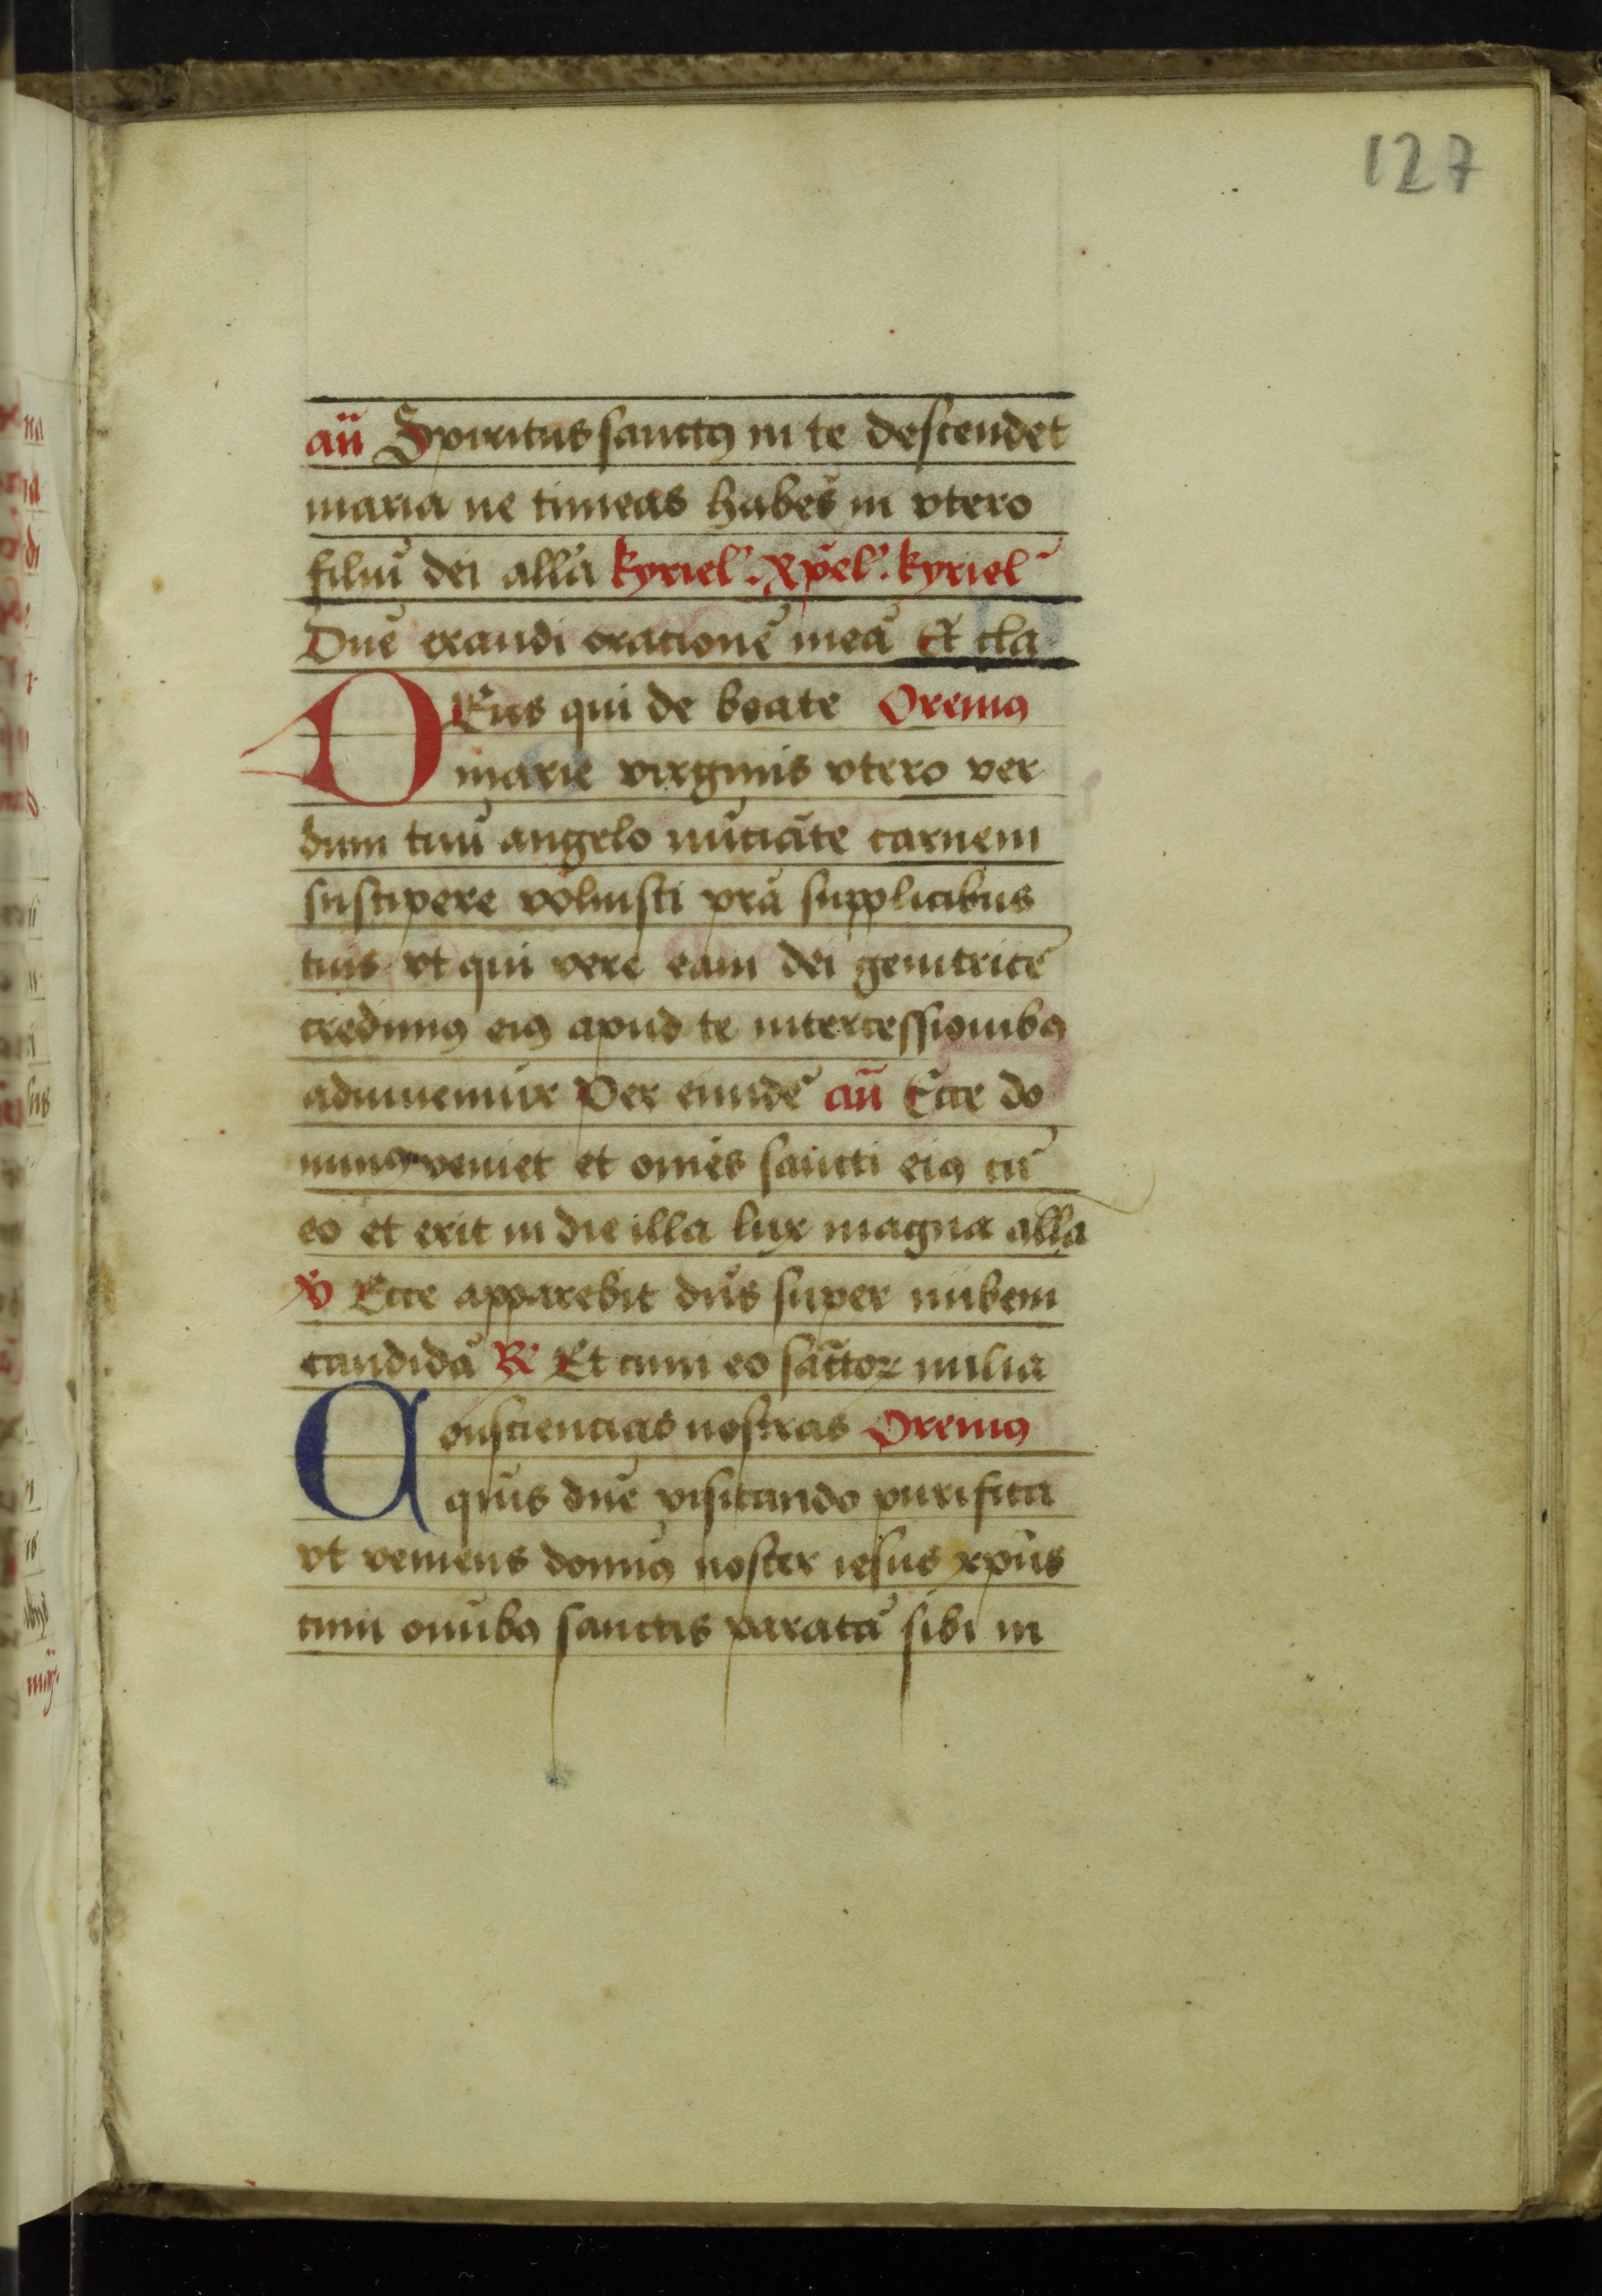 127
an̄ Spiritus sanctꝰ in te descendet
maria ne timeas habēs in vtero
filiū dei alla kyriel'. xp̄el'. kyriel'
Dn̄e exaudi orationē meā Et cla
DEus qui de beate Oremꝰ
marie virginis vtero ver
bum tuū angelo nūciāte carnem
suscipere voluisti pr̄a supplicibus
tuis vt qui vere eam dei genitricē
credimꝰ eiꝰ apud te intercessionibꝰ
adiuuemur Per eiundē an̄ Ecce do
minꝰ veniet et om̄es sancti eiꝰ cū
eo et erit in die illa lux magna alla
℣ Ecce apparebit dn̄s super nubem
candidā ℟ Et cum eo sāctoꝝ milia
Consciencias nostras Oremꝰ
qūs dn̄e visitando purifica
vt veniens domīꝰ noster iesus xp̄us
cum omnibꝰ sanctis paratā sibi in